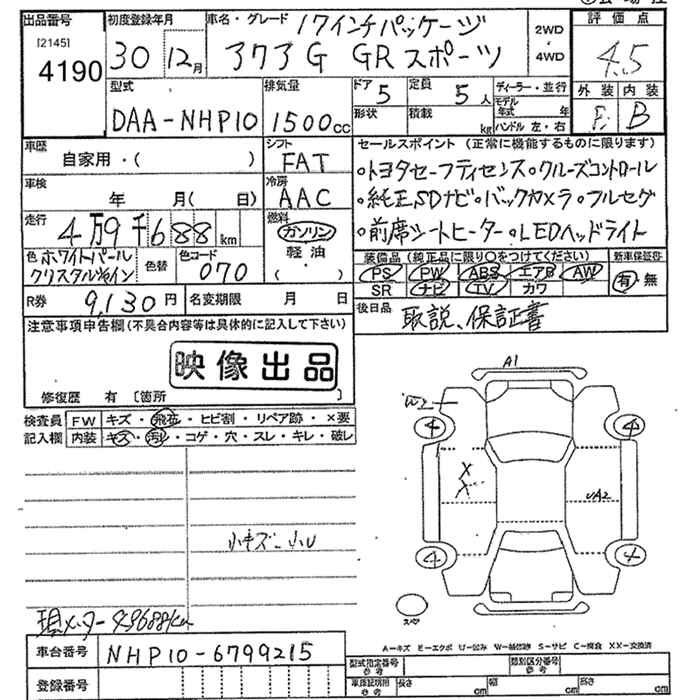 出品番号 [2145] 4190
初度登録年月 30 12月
車名・グレード 17インチパッケージ
アクア G GRスポーツ
2WD・4WD
評価点 4.5
外装 内装 B
型式 DAA-NHP10
排気量 1500cc
ドア 5
形状
定員 5人
積載 kg
ディーラー・並行
モデル年式 年
ハンドル 左・右
車歴 自家用・( )
シフト FAT
車検 年 月( 日)
冷房 AAC
走行 4万9千688km
燃料 ガソリン 軽油 ( )
色 ホワイトパールクリスタルシャイン
色替
色コード 070
R券 9,130円
名変期限 月 日
セールスポイント (正常に機能するものに限ります)
・トヨタセーフティセンス・クルーズコントロール
・純正SDナビ・バックカメラ・フルセグ
・前席シートヒーター・LEDヘッドライト
装備品 (純正品に限り○をつけてください)
PS PW ABS エアB AW
SR ナビ TV カワ
新車保証書 有・無
後日品 取説、保証書
注意事項申告欄 (不具合内容等は具体的に記入して下さい)
映像出品
修復歴 有 〔箇所 〕
検査員記入欄
FW キズ・飛石・ヒビ割・リペア跡・×要
内装 キズ・汚レ・コゲ・穴・スレ・キレ・破レ
小キズ、小U
現メーター 49688km
A1
W2
4
4
X
X
UA2
4
4
スペア
A-キズ E-エクボ U-凹み W-補修跡 S-サビ C-腐食 XX-交換済
車台番号 NHP10-6799215
登録番号
型式指定番号 参考
類別区分番号 参考
車庫証明用 参考 長さ cm 幅 cm 高さ cm